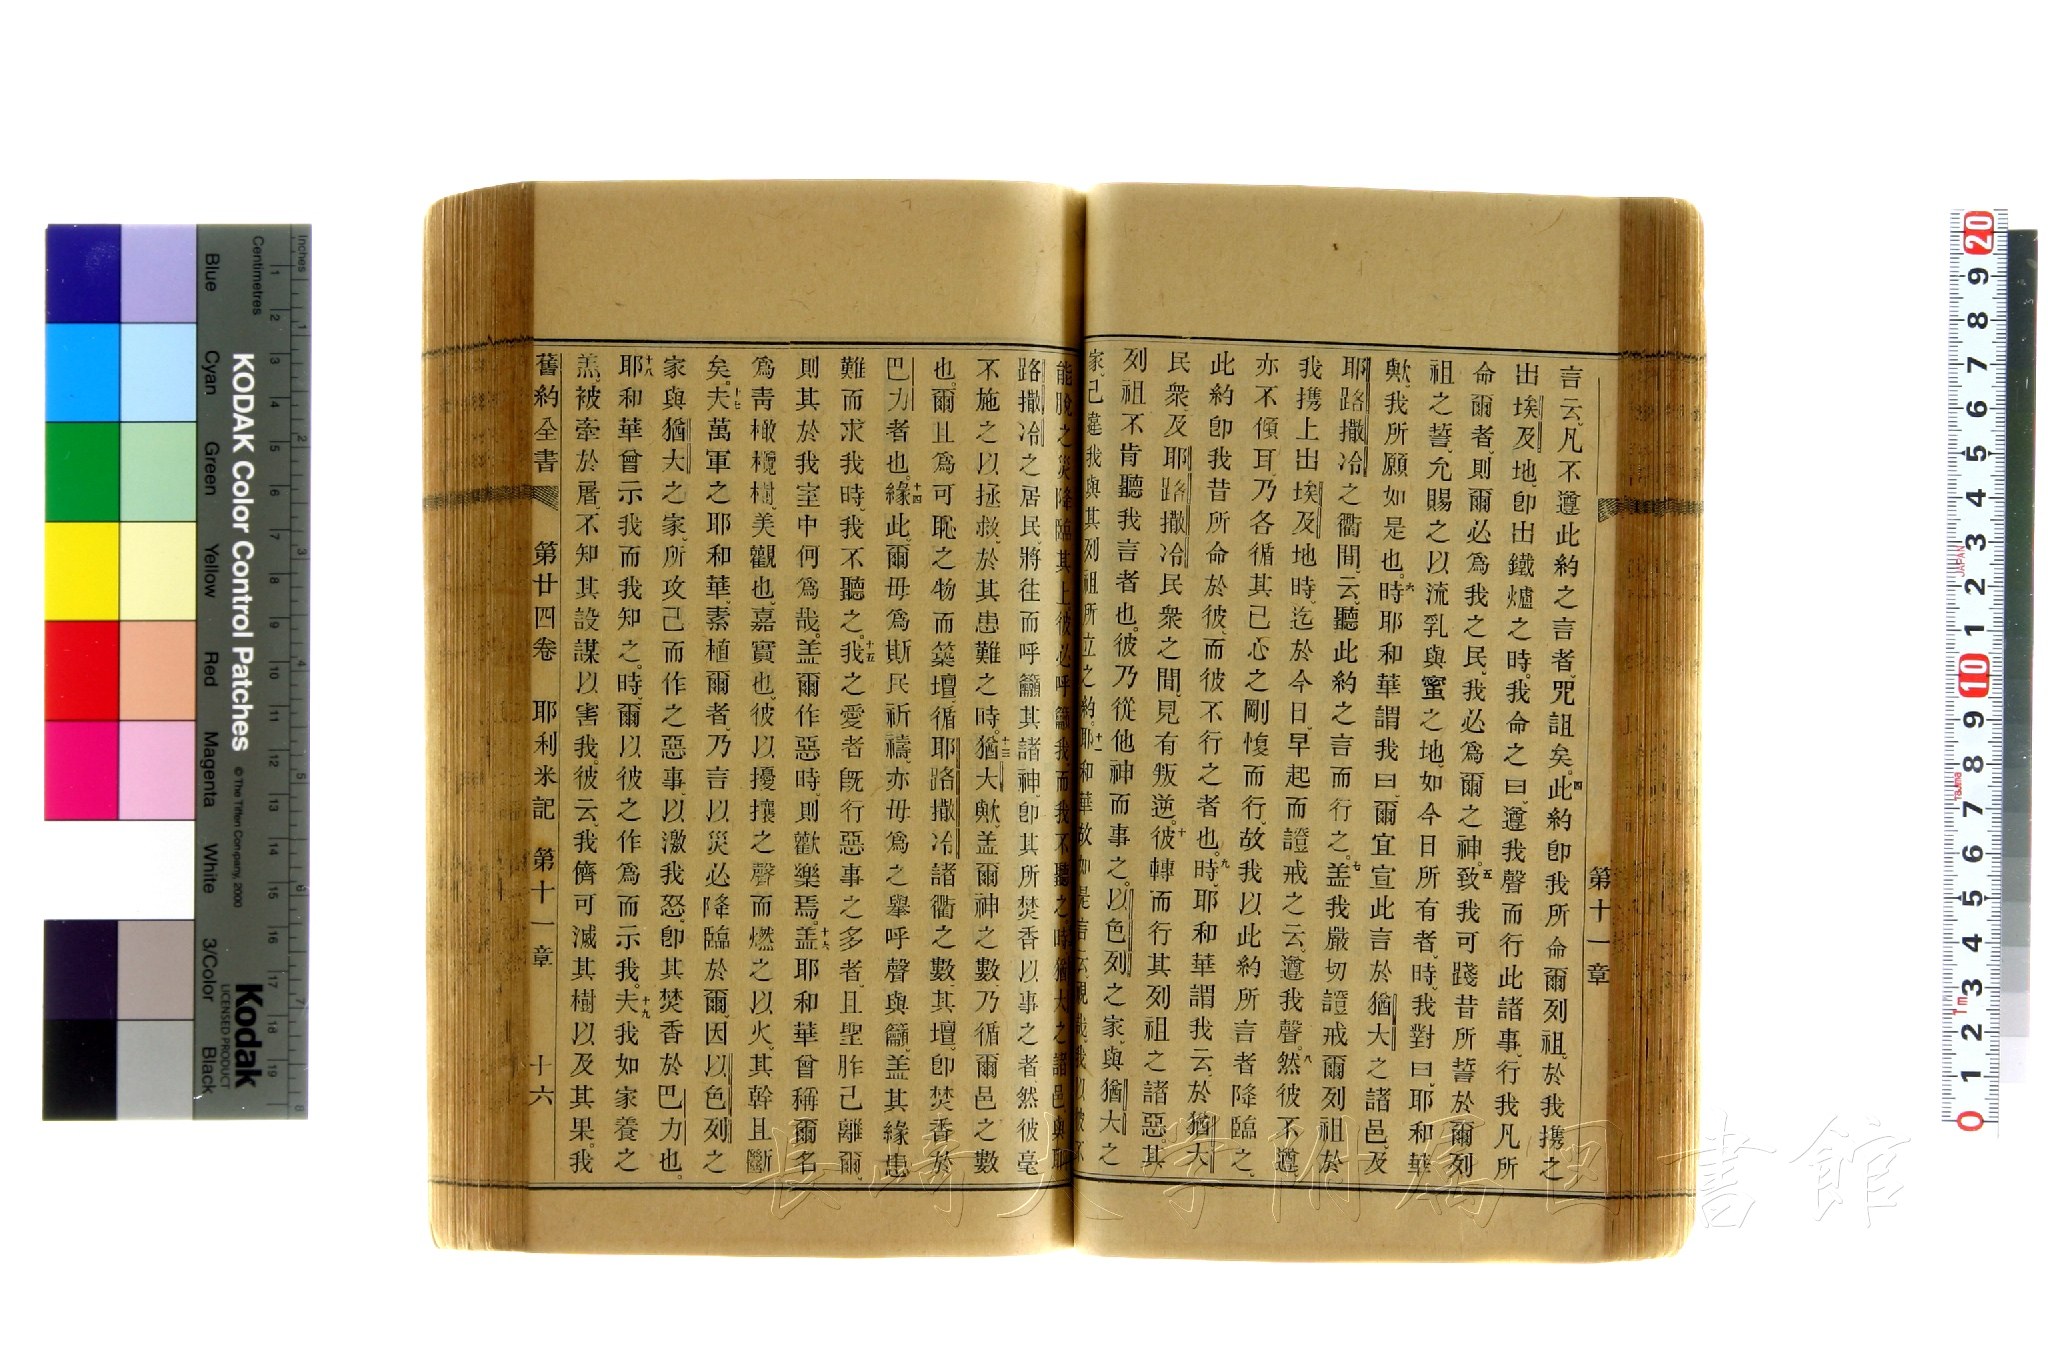 第十一章
言云、凡不遵此約之言者、咒詛矣。四此約卽我所命爾列祖、於我携之
出埃及地、卽出鐵爐之時。我命之曰、遵我聲而行此諸事、行我凡所
命爾者、則爾必爲我之民、我必爲爾之神。五致我可踐昔所誓於爾列
祖之誓、允賜之以流乳與蜜之地、如今日所有者、時、我對曰、耶和華
歟、我所願如是也。六時、耶和華謂我曰、爾宜宣此言於猶大之諸邑、及
耶路撒冷之衢間、云、聽此約之言而行之。七盖我嚴切證戒爾列祖、於
我携上出埃及地時、迄於今日、早起而證戒之、云、遵我聲。八然彼不遵、
亦不傾耳、乃各循其己心之剛愎而行、故我以此約所言者降臨之。
此約卽我昔所命於彼、而彼不行之者也。九時、耶和華謂我云、於猶大
民衆、及耶路撒冷民衆之間、見有叛逆。十彼轉而行其列祖之諸惡、其
列祖不肯聽我言者也。彼乃從他神而事之。以色列之家、與猶大之
家、己違我與其列祖所立之約。十一耶和華故如是言云、視哉、我以彼不
能脫之災降臨其上、彼必呼籲我、而我不聽之。時猶大之諸邑、與耶
路撒冷之居民、將往而呼籲其諸神、卽其所焚香以事之者、然彼毫
不施之以拯救、於其患難之時。十三猶大歟、盖爾神之數、乃循爾邑之數
也。爾且爲可恥之物而築壇、循耶路撒冷諸衢之數、其壇、卽焚香於
巴力者也。十四緣此、爾毋爲斯民祈禱、亦毋爲之舉呼聲與籲、盖其緣患
難而求我時、我不聽之。十五我之愛者旣行惡事之多者、且聖胙己離爾、
則其於我室中何爲哉。盖爾作惡時、則歡樂焉。十六盖耶和華曾稱爾名
爲靑橄欖樹、美觀也、嘉實也、彼以擾攘之聲而燃之以火、其幹且斷
矣。十七夫萬軍之耶和華、素植爾者、乃言以災必降臨於爾、因以色列之
家與猶大之家、所攻己而作之惡事、以激我怒、卽其焚香於巴力也。
十八耶和華曾示我而我知之。時、爾以彼之作爲而示我。十九夫我如家養之
羔、被牽於屠、不知其設謀以害我。彼云、我儕可滅其樹以及其果。我
舊約全書 第廿四卷 耶利米記 第十一章 十六
KODAK Color Control Patches
© The Tiffen Company, 2000
Kodak
LICENSED PRODUCT
Inches
Centimetres
Blue Cyan Green Yellow Red Magenta White 3/Color Black
長崎大学附属図書館